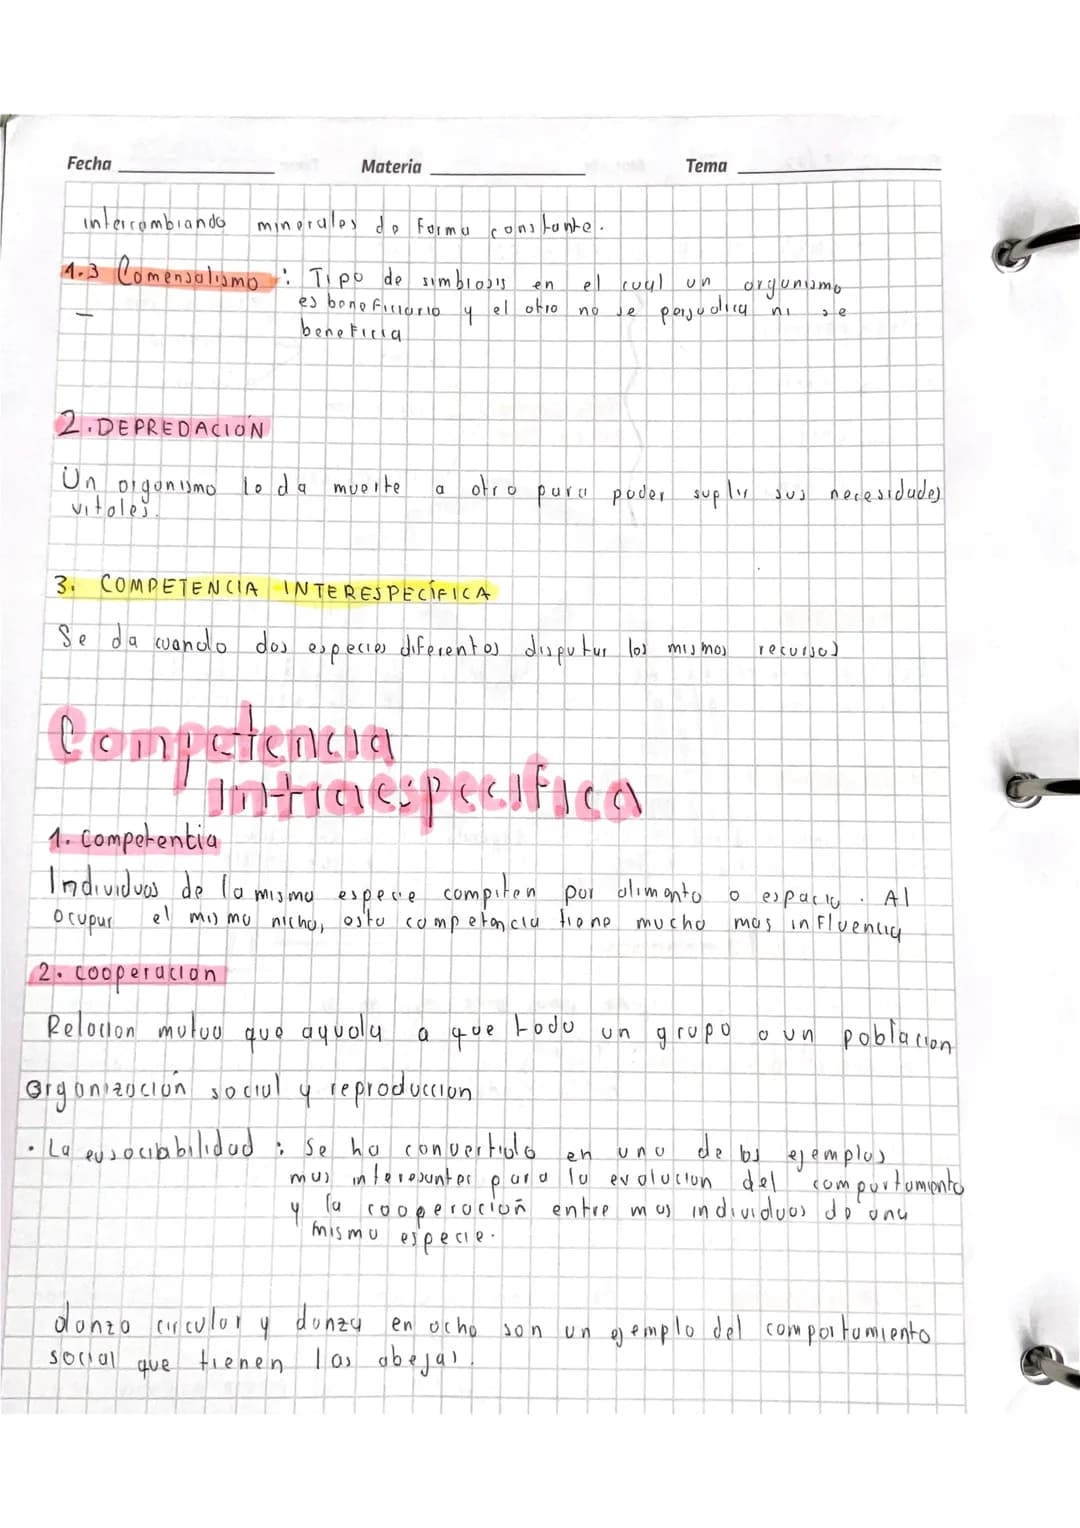 Fecha Materia Tema
intercambiando minerales de forma constante.
1.3 Comensalismo : Tipo de simbiosis en el cual un organismo
es beneficiario y el otro no se perjudica ni se
beneficia
2. DEPREDACIÓN
Un organismo le da muerte a otro para poder suplir sus necesidades
vitales.
3. COMPETENCIA INTERESPECÍFICA
Se da cuando dos especies diferentes disputar los mismos recursos
Competencia
intraespecifica
1. Competentia
Individuos de la misma especie compiten por alimento o espacio. Al
ocupar el mismo nicho, esta competencia tiene mucha mas influencia
2. cooperacion
Relacion mutua que ayuda a que todo un grupo o un poblacion
Organización social y reproduccion
• La eusociabilidad : Se ha convertido en uno de los ejemplos
mas interesantes para la evolucion del comportamiento
y la cooperacion entre mas individuos de una
misma especie.
danza circular y danza en ocho son un ejemplo del comportamiento
social que tienen las abejas.